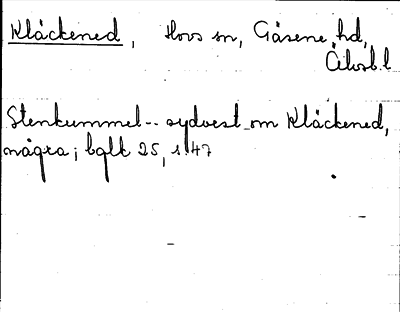 Kläckened, Hovs sn, Gäsene hd,
Älvsb. l
Stenkummel -- sydvest om Kläckened,
några; bglt 25, s. 47